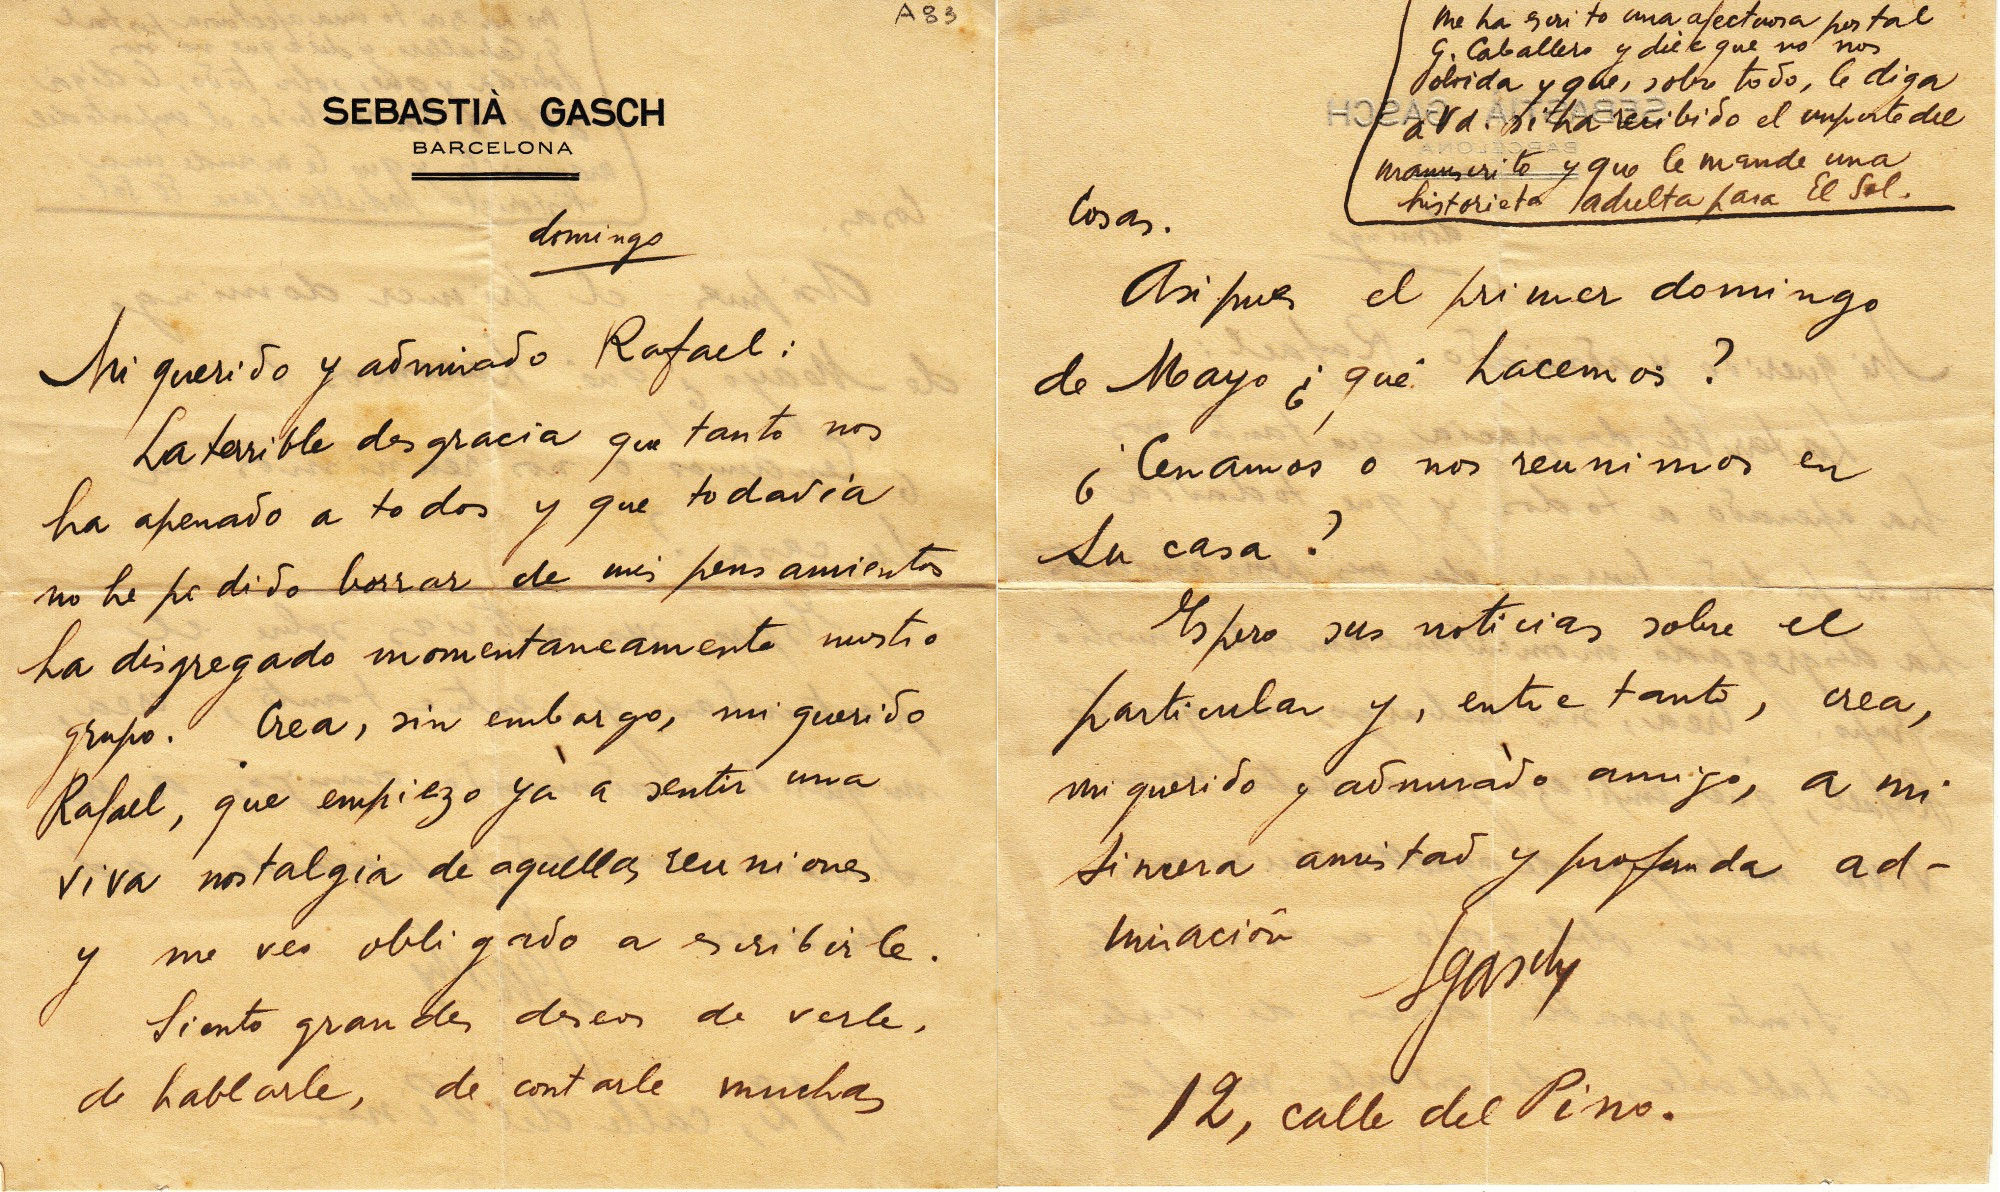 A 83
SEBASTIÀ GASCH
BARCELONA
domingo
Mi querido y admirado Rafael:
La terrible desgracia que tanto nos
ha apenado a todos y que todavía
no he podido borrar de mis pensamientos
ha disgregado momentaneamente nuestro
grupo. Crea, sin embargo, mi querido
Rafael, que empiezo yà a sentir una
viva nostalgia de aquellas reuniones
y me veo obligado a escribirle.
Siento grandes deseos de verle,
de hablarle, de contarle muchas
me ha escrito una afectuosa postal
G. Caballero y dice que no nos
olvida y que, sobre todo, le diga
a Vd. si ha recibido el importe del
manuscrito y que le mande una
historieta adulta para El Sol.
cosas.
Asi pues el primer domingo
de Mayo ¿qué hacemos?
¿Cenamos o nos reunimos en
su casa?
Espero sus noticias sobre el
particular y, entre tanto, crea,
mi querido y admirado amigo, a mi
sincera amistad y profunda ad-
miración
SGasch
12, calle del Pino.